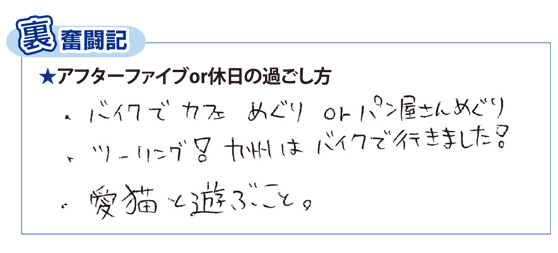 裏奮闘記
★アフターファイブor休日の過ごし方
・バイクでカフェめぐり orパン屋さんめぐり
・ツーリング！九州はバイクで行きました！
・愛猫と遊ぶこと。